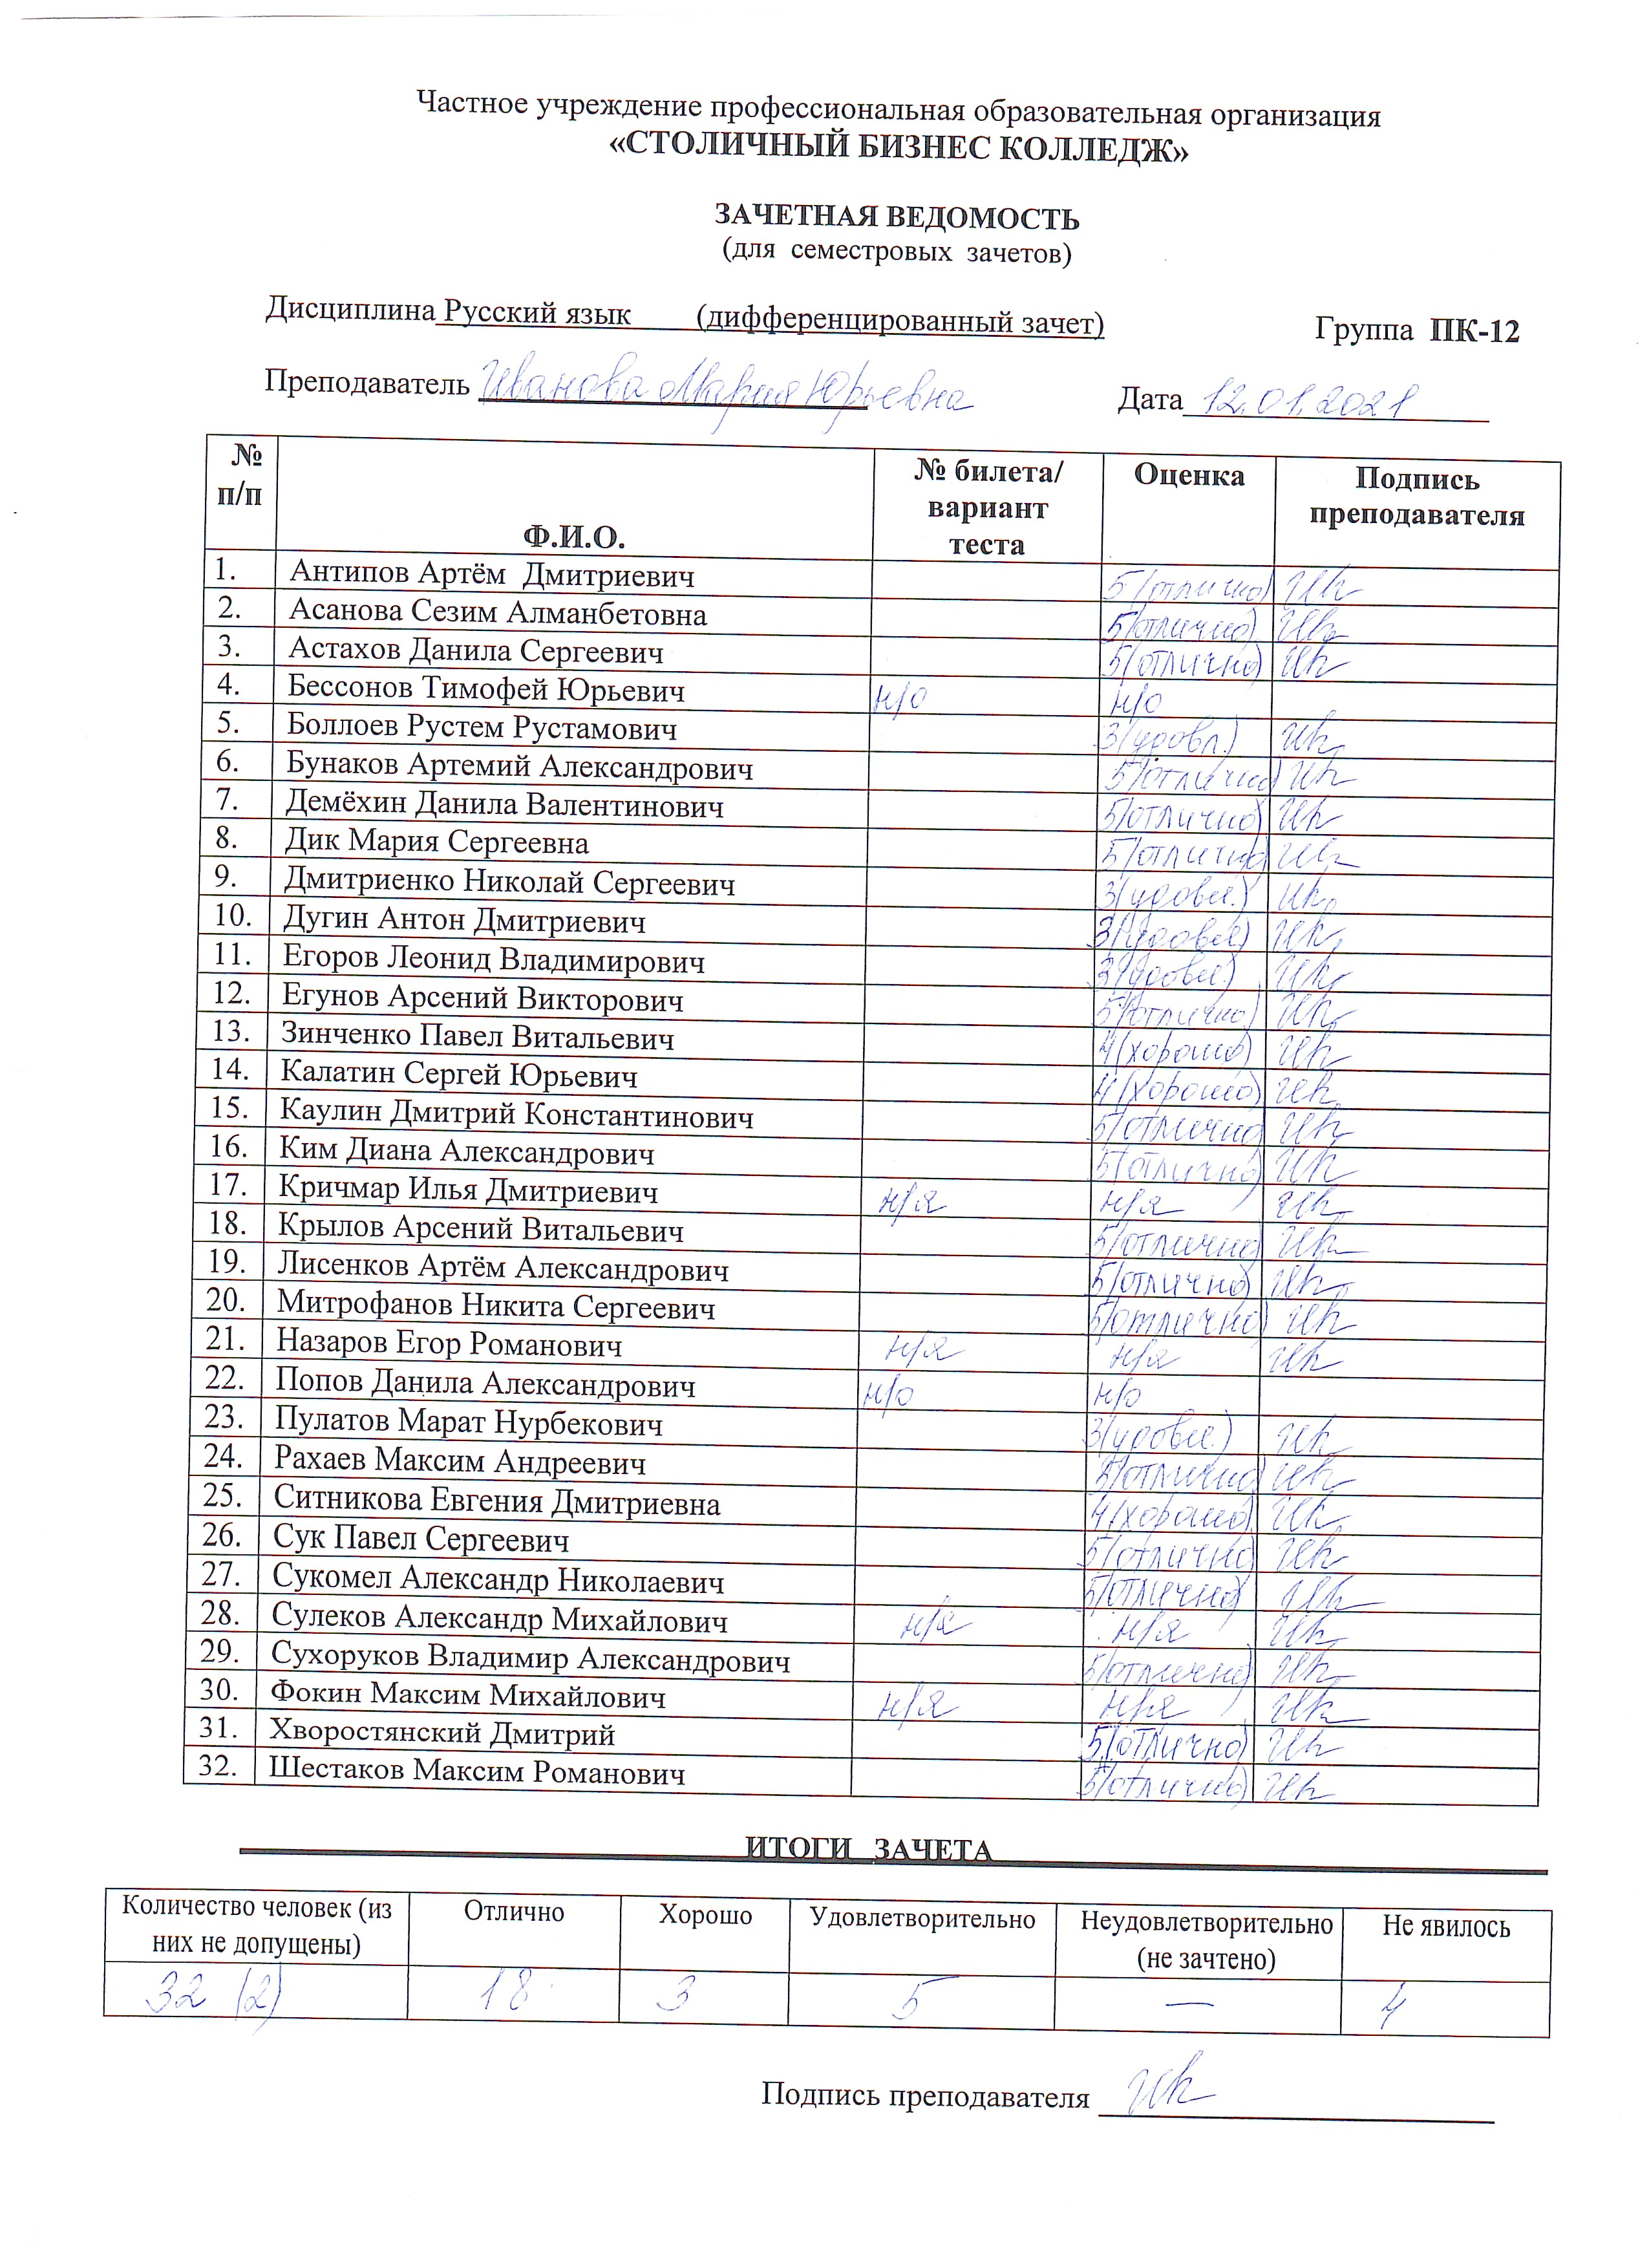 Частное учреждение профессиональная образовательная организация
«СТОЛИЧНЫЙ БИЗНЕС КОЛЛЕДЖ»
ЗАЧЕТНАЯ ВЕДОМОСТЬ
(для семестровых зачетов)
Дисциплина Русский язык (дифференцированный зачет) Группа ПК-12
Преподаватель Иванова Мария Юрьевна Дата 12.01.2021
№ п/п Ф.И.О. № билета/ вариант теста Оценка Подпись преподавателя
1. Антипов Артём Дмитриевич 5 (отлично)
2. Асанова Сезим Алманбетовна 5 (отлично)
3. Астахов Данила Сергеевич 5 (отлично)
4. Бессонов Тимофей Юрьевич н/о н/о
5. Боллоев Рустем Рустамович 3 (удовл.)
6. Бунаков Артемий Александрович 5 (отлично)
7. Демёхин Данила Валентинович 5 (отлично)
8. Дик Мария Сергеевна 5 (отлично)
9. Дмитриенко Николай Сергеевич 3 (удовл.)
10. Дугин Антон Дмитриевич 3 (удовл)
11. Егоров Леонид Владимирович 3 (удовл)
12. Егунов Арсений Викторович 5 (отлично)
13. Зинченко Павел Витальевич 4 (хорошо)
14. Калатин Сергей Юрьевич 4 (хорошо)
15. Каулин Дмитрий Константинович 5 (отлично)
16. Ким Диана Александрович 5 (отлично)
17. Кричмар Илья Дмитриевич н/я н/я
18. Крылов Арсений Витальевич 5 (отлично)
19. Лисенков Артём Александрович 5 (отлично)
20. Митрофанов Никита Сергеевич 5 (отлично)
21. Назаров Егор Романович н/я н/я
22. Попов Данила Александрович н/о н/о
23. Пулатов Марат Нурбекович 3 (удовл.)
24. Рахаев Максим Андреевич 5 (отлично)
25. Ситникова Евгения Дмитриевна 4 (хорошо)
26. Сук Павел Сергеевич 5 (отлично)
27. Сукомел Александр Николаевич 5 (отлично)
28. Сулеков Александр Михайлович н/я н/я
29. Сухоруков Владимир Александрович 5 (отлично)
30. Фокин Максим Михайлович н/я н/я
31. Хворостянский Дмитрий 5 (отлично)
32. Шестаков Максим Романович 5 (отлично)
ИТОГИ ЗАЧЕТА
Количество человек (из них не допущены) Отлично Хорошо Удовлетворительно Неудовлетворительно (не зачтено) Не явилось
32 (2) 18 3 5 — 4
Подпись преподавателя